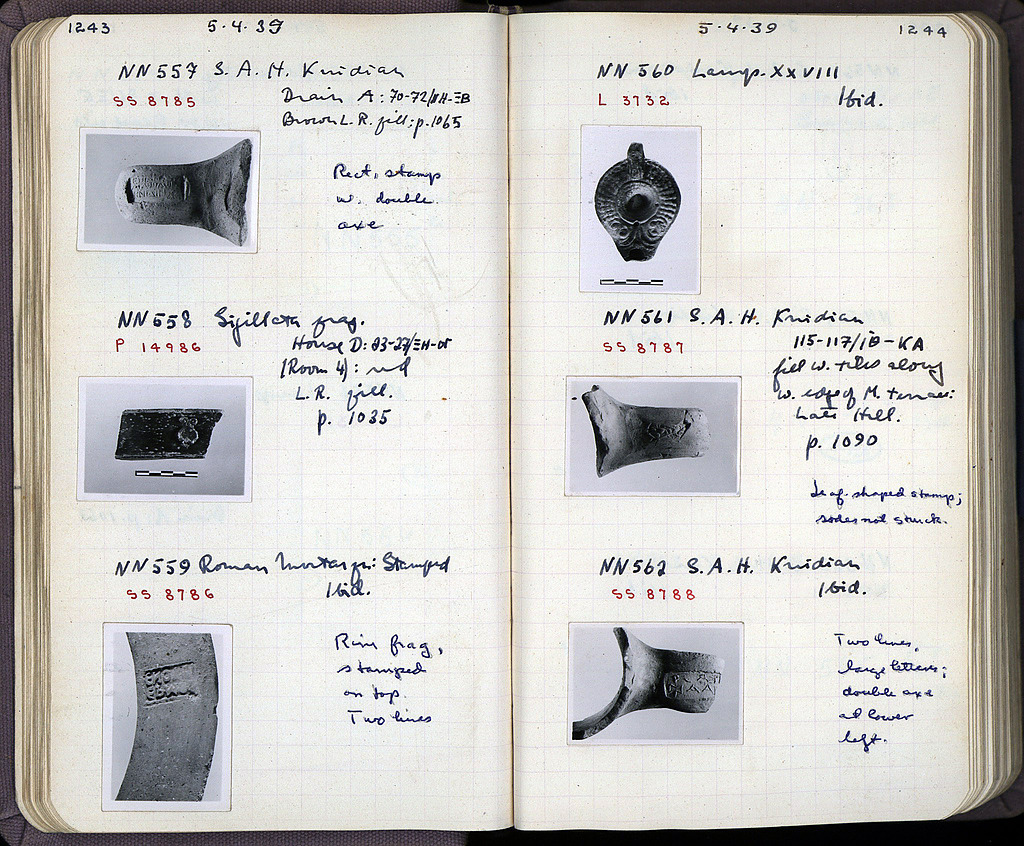 1243
5·4·39
NN 557 S. A. H. Knidian
SS 8785
Drain A: 70-72/ΙΗ-ΞΒ
Brown L. R. fill; p. 1065
Rect. stamp
w. double
axe
NN 558 Sigillata frag.
P 14986
House D: 23-27/ΞΗ-
(Room 4): red
L. R. fill.
p. 1035
NN 559 Roman Mortar fr: Stamped
SS 8786
Ibid.
Rim frag,
stamped
on top.
Two lines
5·4·39
1244
NN 560 Lamp-XXVIII
L 3732
Ibid.
NN 561 S. A. H. Knidian
SS 8787
115-117/ΙΒ-ΚΑ
fill w. tiles along
w. edge of M. terrace:
Late Hell.
p. 1090
Leaf-shaped stamp;
sides not struck.
NN 562 S. A. H. Knidian
SS 8788
Ibid.
Two lines,
large letters;
double axe
at lower
left.